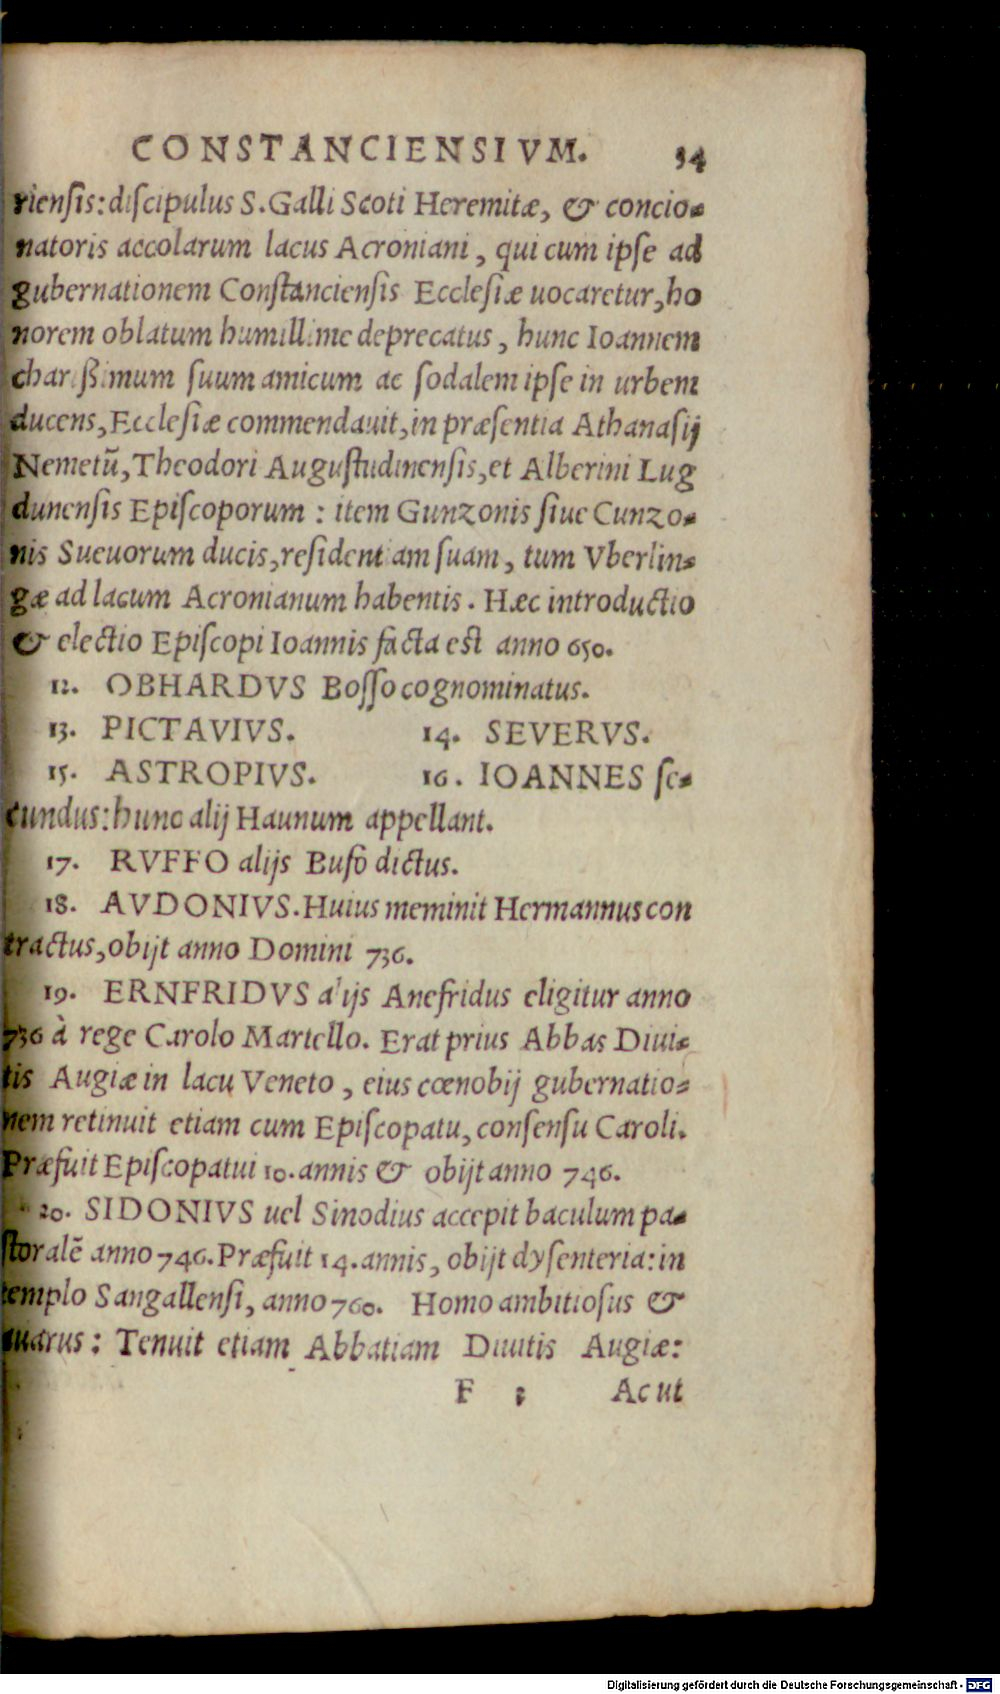 CONSTANCIENSIVM. 34
riensis: discipulus S. Galli Scoti Heremitæ, & concio-
natoris accolarum lacus Acroniani, qui cum ipse ad
gubernationem Constanciensis Ecclesiæ uocaretur, ho
norem oblatum humillime deprecatus, hunc Ioannem
charißimum suum amicum ac sodalem ipse in urbem
ducens, Ecclesiæ commendauit, in præsentia Athanasij
Nemetũ, Theodori Augustudinensis, et Alberini Lug
dunensis Episcoporum: item Gunzonis siue Cunzo-
nis Sueuorum ducis, residentiam suam, tum Vberlin-
gæ ad lacum Acronianum habentis. Hæc introductio
& electio Episcopi Ioannis facta est anno 650.
12. OBHARDVS Bosso cognominatus.
13. PICTAVIVS. 14. SEVERVS.
15. ASTROPIVS. 16. IOANNES se-
cundus: hunc alij Haunum appellant.
17. RVFFO alijs Bufo dictus.
18. AVDONIVS. Huius meminit Hermannus con
tractus, obijt anno Domini 736.
19. ERNFRIDVS alijs Anefridus eligitur anno
736 à rege Carolo Martello. Erat prius Abbas Diui-
tis Augiæ in lacu Veneto, eius cœnobij gubernatio-
nem retinuit etiam cum Episcopatu, consensu Caroli.
Præfuit Episcopatui 10. annis & obijt anno 746.
20. SIDONIVS uel Sinodius accepit baculum pa-
storalẽ anno 746. Præfuit 14. annis, obijt dysenteria: in
templo Sangallensi, anno 760. Homo ambitiosus &
auarus: Tenuit etiam Abbatiam Diuitis Augiæ:
F Ac ut
Digitalisierung gefördert durch die Deutsche Forschungsgemeinschaft - DFG